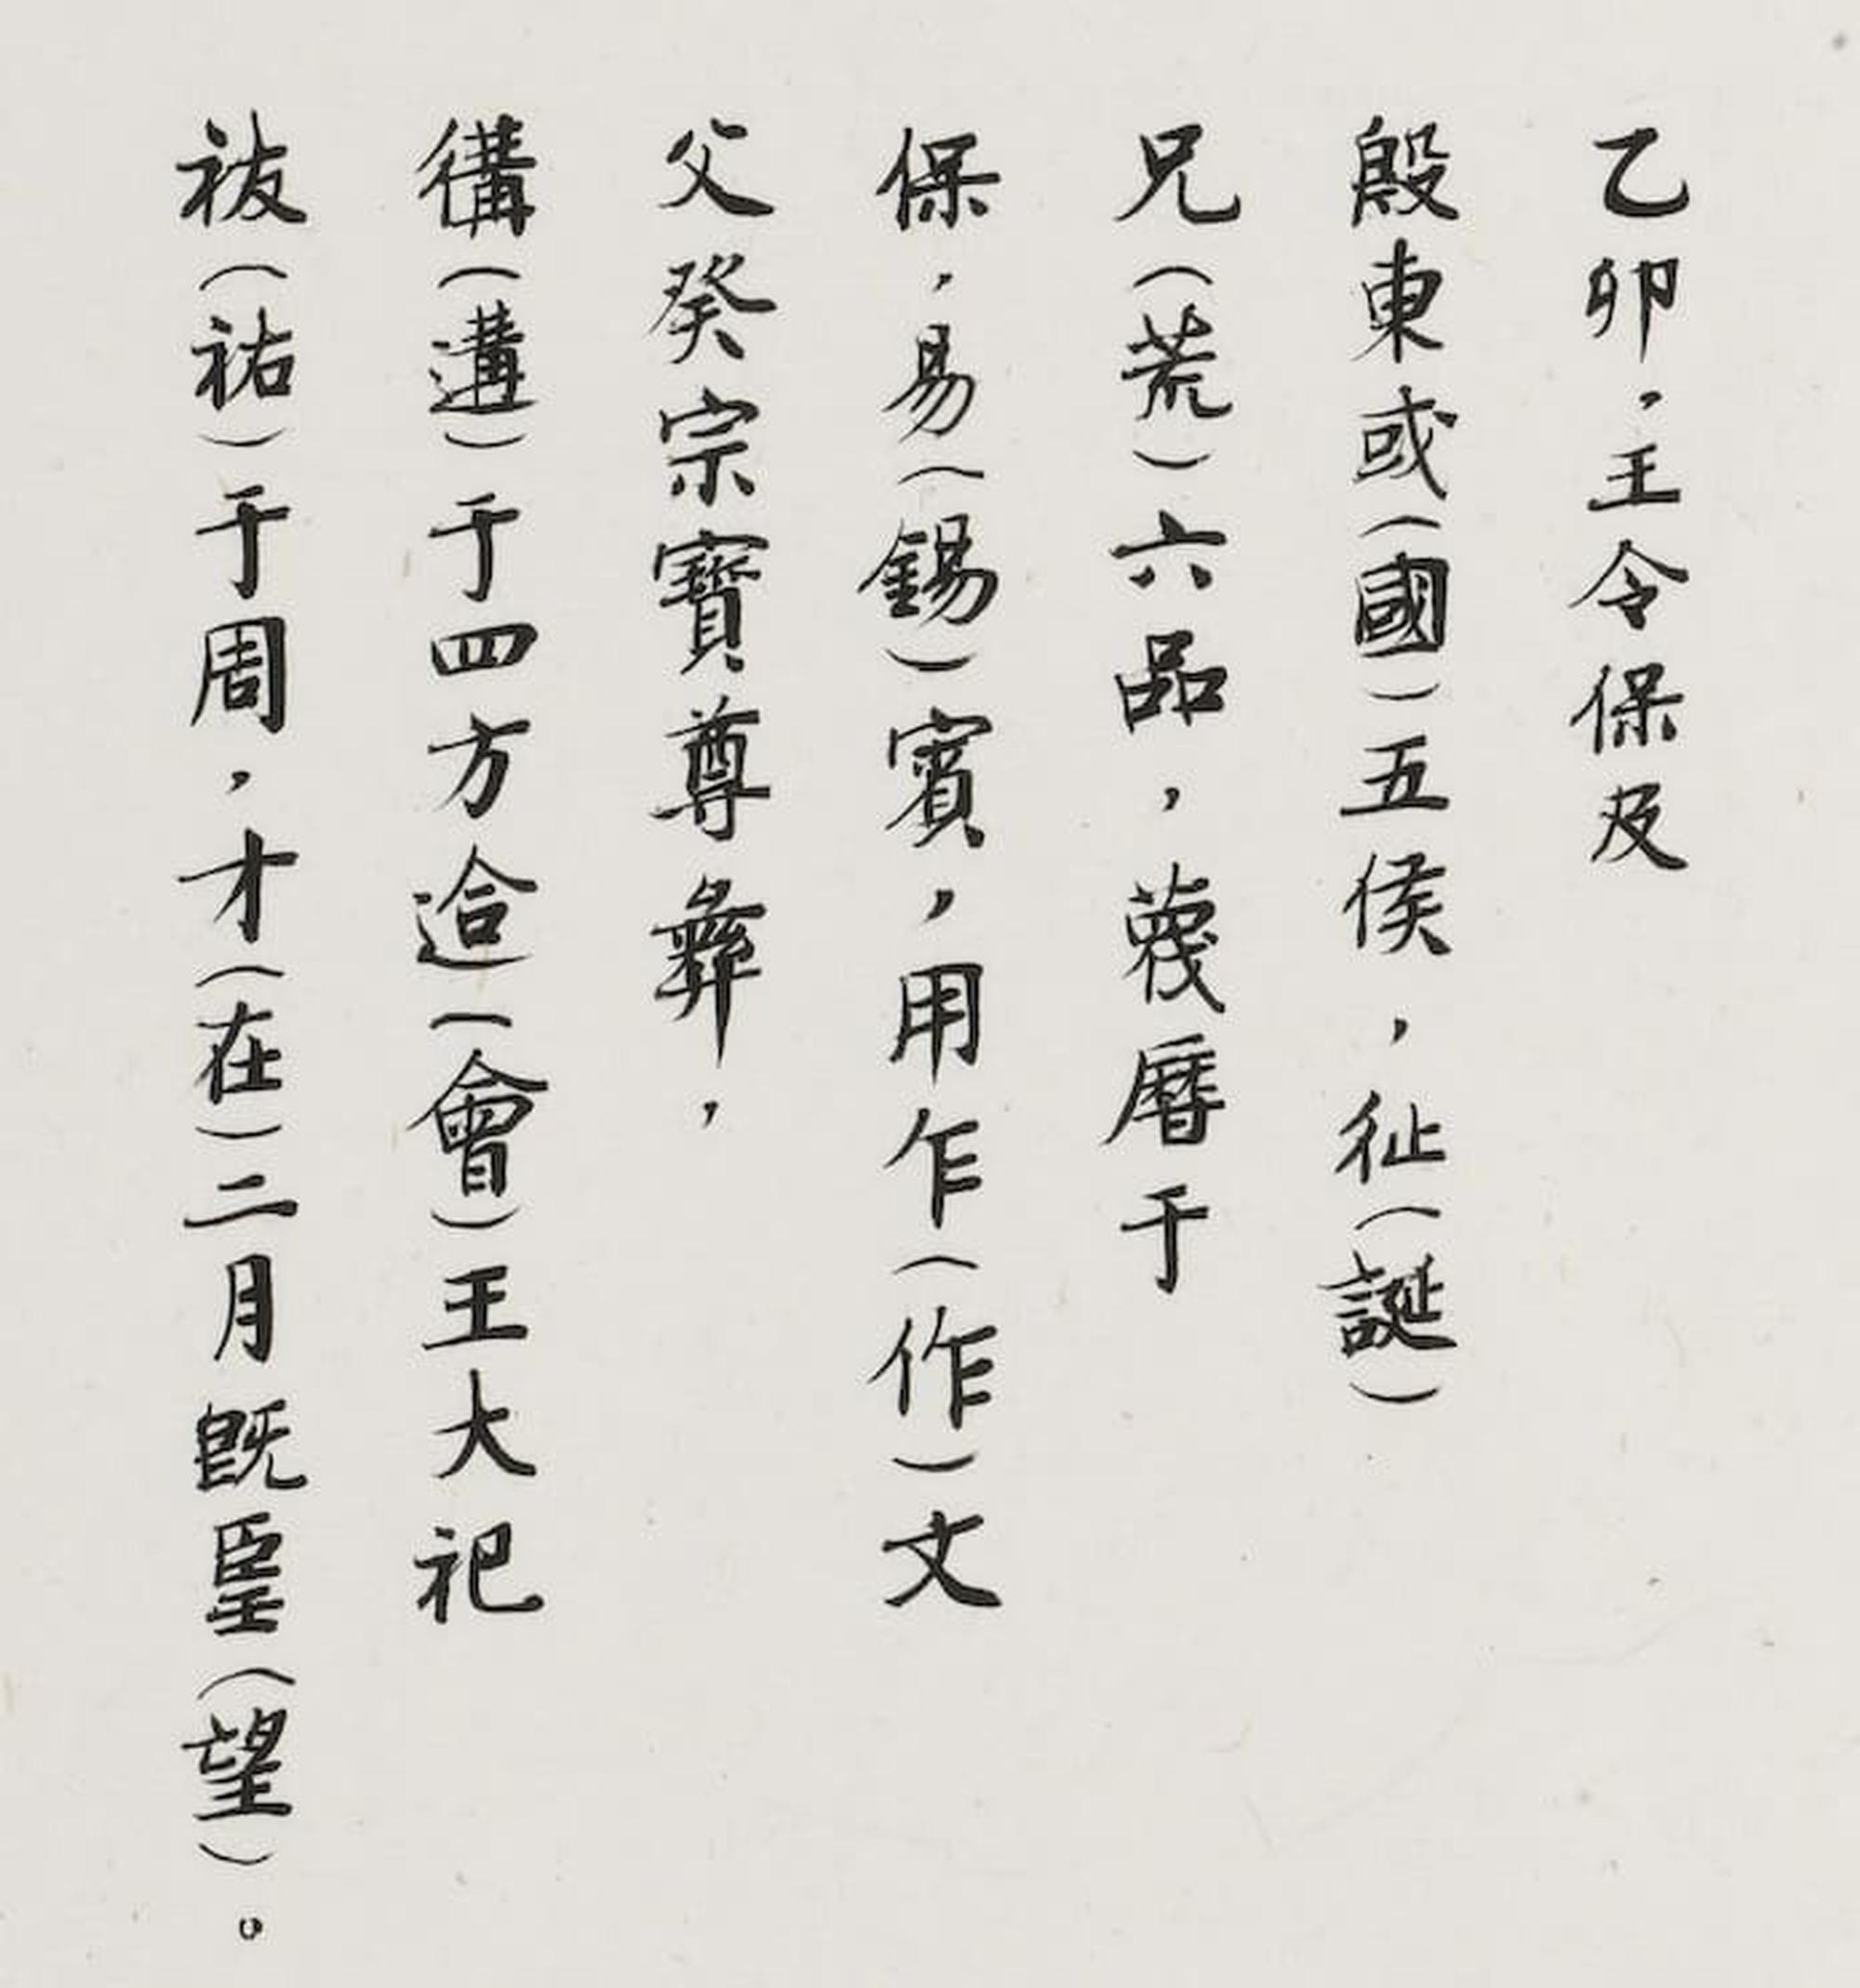 乙卯，王令保及
殷東或（國）五侯，㢟（誕）
兄（荒）六品，蔑曆于
保，易（錫）賓，用乍（作）文
父癸宗寶尊彝，
遘（遘）于四方迨（會）王大祀
祓（祐）于周，才（在）二月既朢（望）。